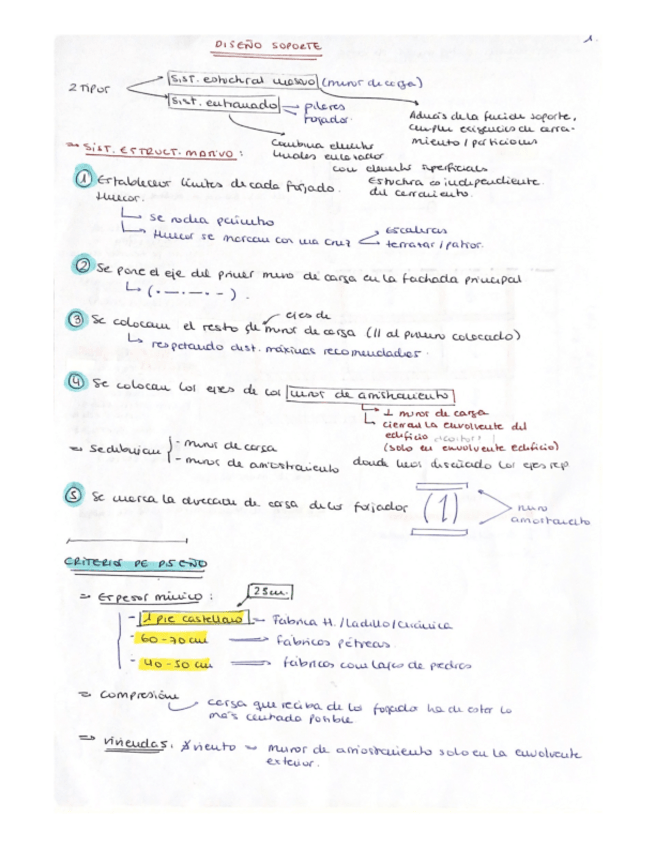 DISEÑO SOPORTE
1.
2 TIPOS
SIST. estructural masivo (muros de carga)
SIST. entramado
pilares
forjador.
Además de la función soporte,
cumplen exigencias de cerra-
miento / particiones
Combina elementos
lineales enlazados
con elementos superficiales
Estructura es independiente
del cerramiento.
SIST. ESTRUCT. MASIVO:
① Establecer límites de cada forjado.
Huecos.
se rodea perímetro
Huecos se marcan con una cruz
escaleras
terrazas / patios.
② Se pone el eje del primer muro de carga en la fachada principal
(·—·—·-·).
③ Se colocan el resto de muros de carga (// al primero colocado)
ejes de
respetando dist. máximas recomendadas.
④ Se colocan los ejes de los muros de arriostramiento
⊥ muros de carga
cierran la envolvente del
edificio
(solo en envolvente edificio)
= Se dibujan
- muros de carga
- muros de arriostramiento
donde hemos diseñado los ejes
⑤ Se marca la dirección de carga de los forjados
(1)
muro
arriostramiento
CRITERIOS DE DISEÑO
= Espesor mínimo:
25cm.
- 1 pie castellano – Fábrica H. /Ladrillo/Cerámica
- 60-70 cm
fábricas pétreas.
- 40-50 cm
fábricas con lajas de piedra
= Compresión
carga que reciba de los forjados ha de estar lo
más centrada posible
= viviendas: viento = muros de arriostramiento solo en la envolvente
exterior.